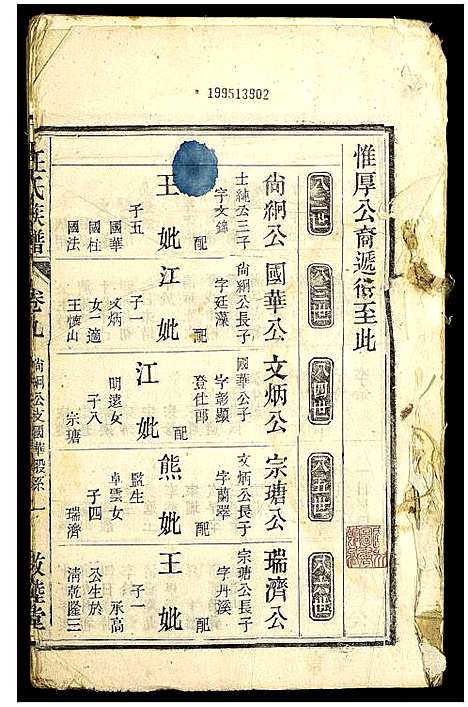 199513902
惟厚公裔遞衍至此
八二世
尙絅公
士純公三子
字文錦
配
王妣
子五
國華
國柱
國法
八三世
國華公
尙絅公長子
字廷藻
配
江妣
子一
文炳
女一適
王懷山
八四世
文炳公
國華公子
字彰顯
登仕郎
配
江妣
明遠女
子八
宗瑭
八五世
宗瑭公
文炳公長子
字蘭翠
配
熊妣
監生
卓雲女
子四
瑞濟
八六世
瑞濟公
宗瑭公長子
字丹溪
配
王妣
子一
承高
公生於
淸乾隆三
氏族譜
卷九
尙絅公支國華股系
一
敦睦堂